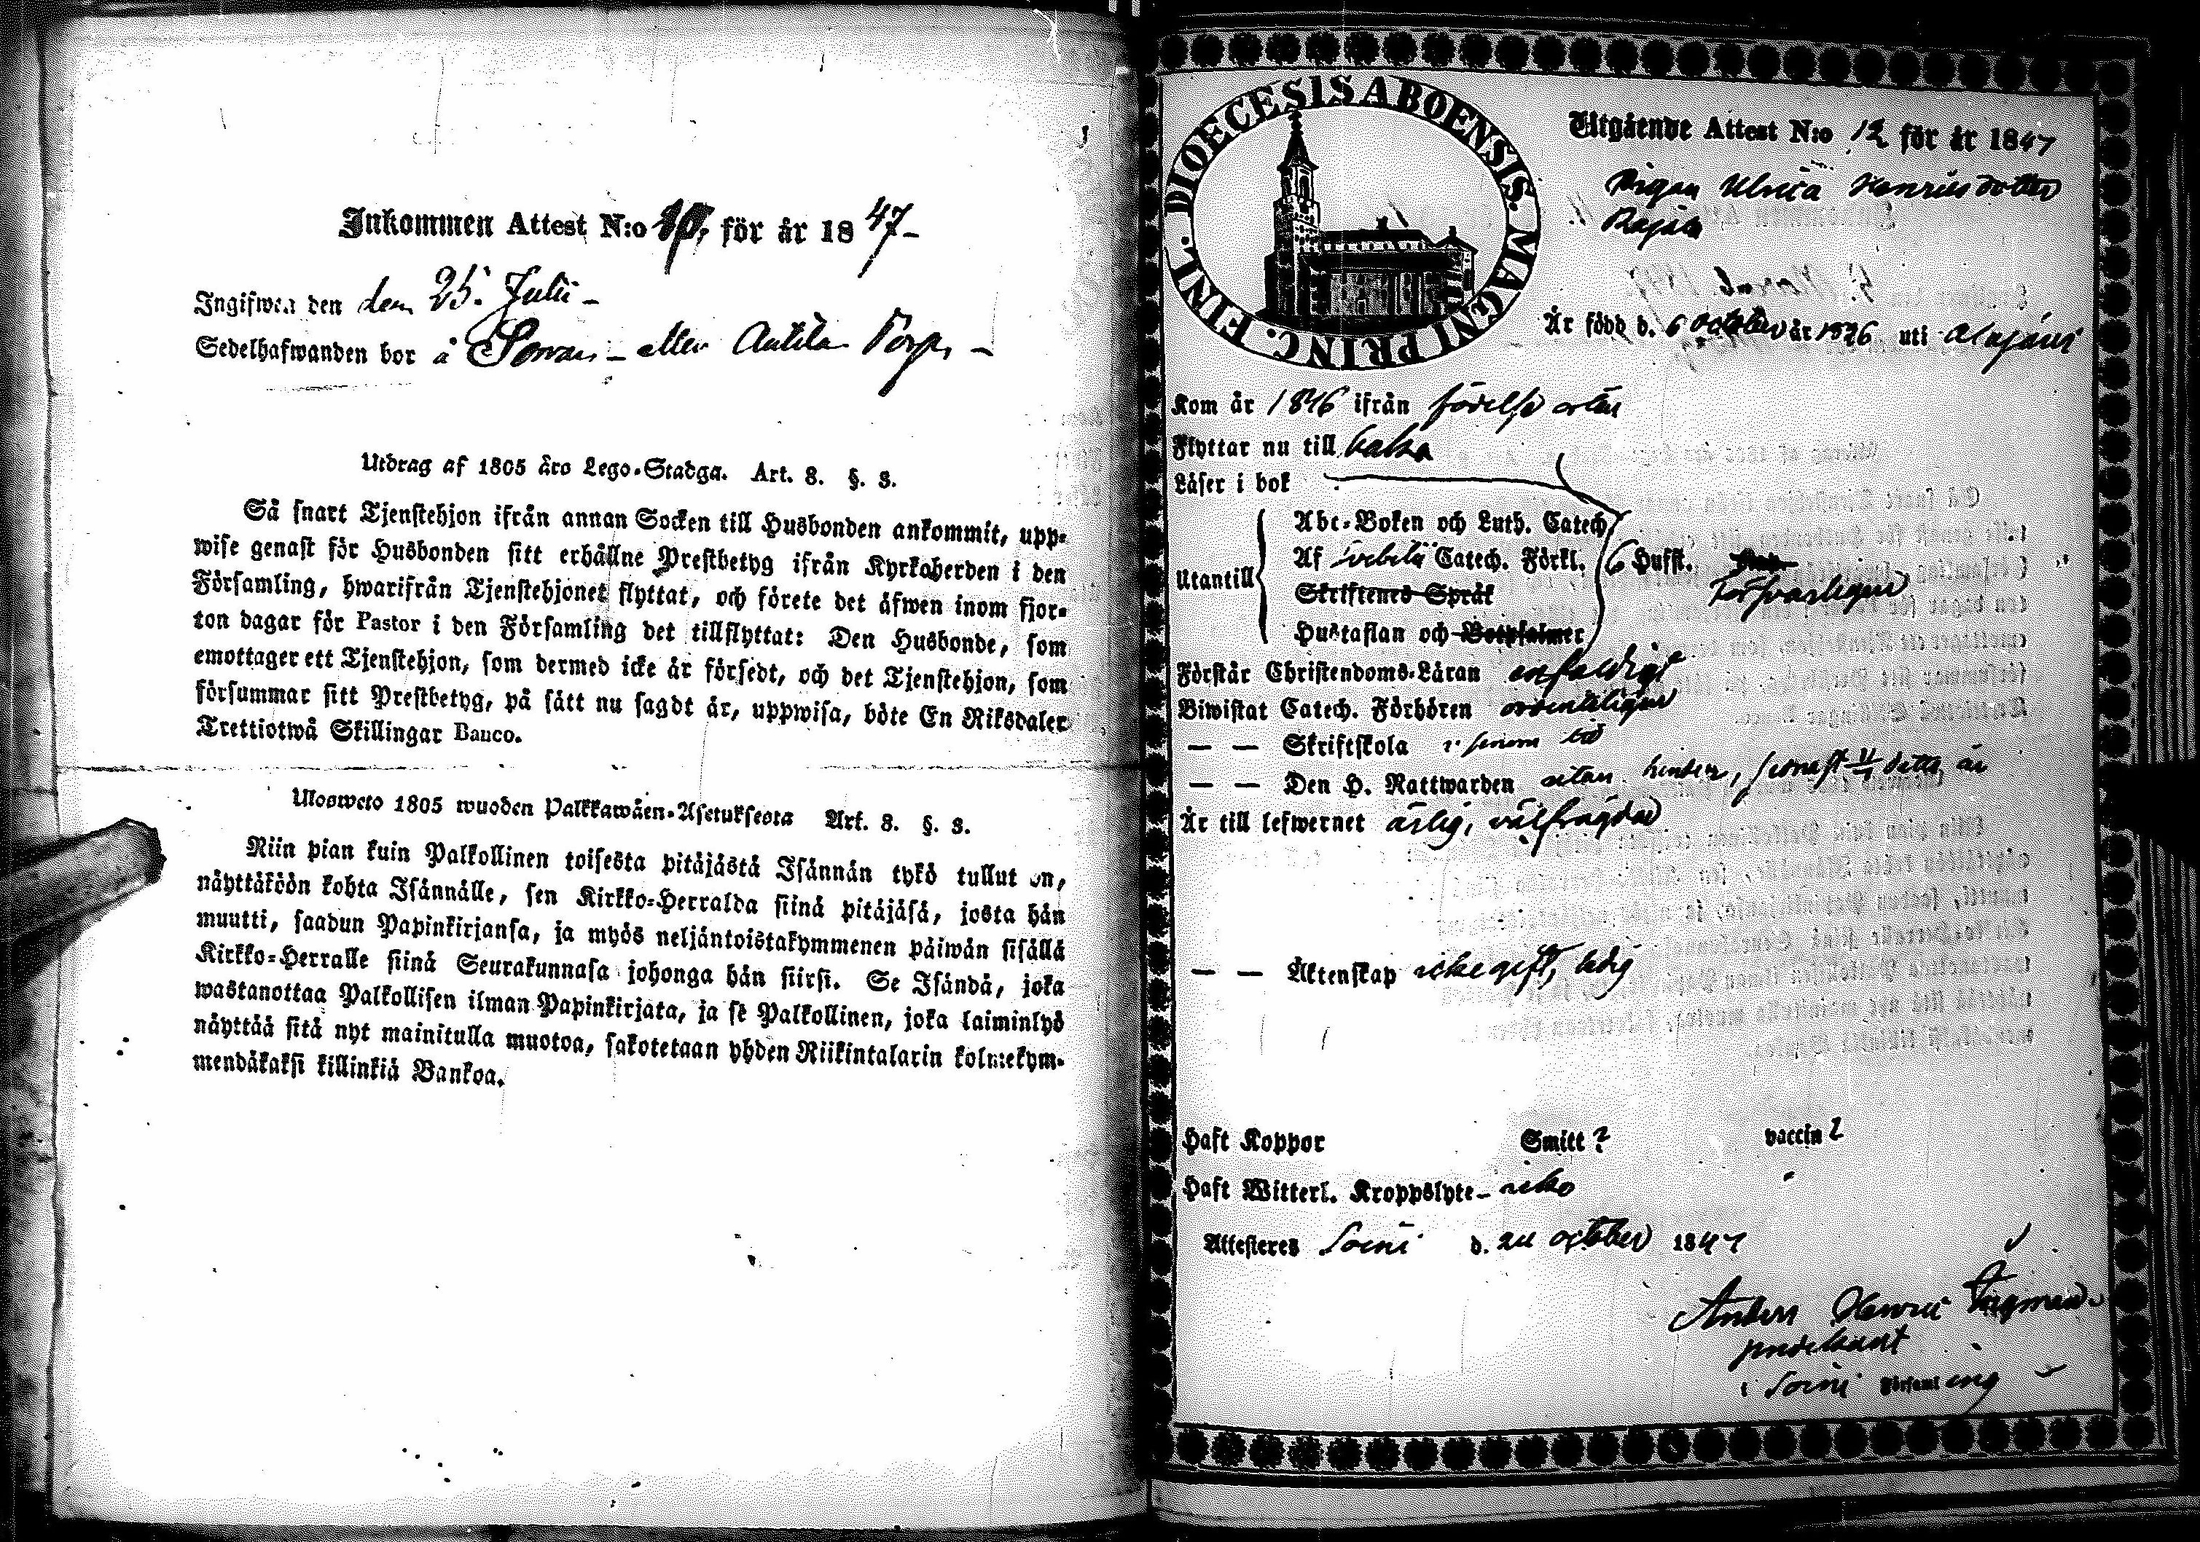 Inkommen Attest N:o 10, för år 1847-
Ingifwen den den 25. Julii -
Sedelhafwanden bor å - eller Anttila Torp -
Utdrag af 1805 års Lego-Stadga. Art. 8. §. 3.
Så snart Tjenstehjon ifrån annan Socken till Husbonden ankommit, upp-
wise genast för Husbonden sitt erhållne Prestbetyg ifrån Kyrkoherden i den
Församling, hwarifrån Tjenstehjonet flyttat, och förete det äfwen inom fjor-
ton dagar för Pastor i den Församling det tillflyttat: Den Husbonde, som
emottager ett Tjenstehjon, som dermed icke är försedt, och det Tjenstehjon, som
försummar sitt Prestbetyg, på sätt nu sagdt är, uppwisa, böte En Riksdaler
Trettiotwå Skillingar Banco.
Ulosweto 1805 wuoden Palkkawäen-Asetuksesta Art. 8. §. 3.
Niin pian kuin Palkollinen toisesta pitäjästä Isännän tykö tullut on,
näyttäköön kohta Isännälle, sen Kirkko-Herralda siinä pitäjäsä, josta hän
muutti, saadun Papinkirjansa, ja myös neljäntoistakymmenen päiwän sisällä
Kirkko-Herralle siinä Seurakunnasa johonga hän siirsi. Se Isändä, joka
wastanottaa Palkollisen ilman Papinkirjata, ja se Palkollinen, joka laiminlyö
näyttää sitä nyt mainitulla muotoa, sakotetaan yhden Riikintalarin kolmekym-
mendäkaksi killinkiä Bankoa.
DIOECESIS ABOENSIS. MAGNI PRINC. FINL.
Utgående Attest N:o 12 för år 1847
Pigan Ulrica Henricsdotter
Rajala
Är född d. 6 october år 1826 uti Alajärvi
Kom år 1846 ifrån födelse orten
Flyttar nu till
Läser i bok
Utantill
Abc-Boken och Luth. Catech.
Af Svebelii Catech. Förkl. 6 Hufst.
försvarligen
Skriftenes Språk
Hustaflan och Botpsalmer
Förstår Christendoms-Läran enfaldigt
Biwistat Catech. Förhören ordenteligen
— — Skriftskola
— — Den H. Nattwarden utan hinder, senast detta år
Är till lefwernet ärlig, välfrägdad
— — Äktenskap icke gift, ledig
Haft Koppor Smitt ? vaccin ?
Haft Witterl. Kroppslyte - icke
Attesteres Soini d. october 1847
Anders Henric Ingman
i Soini Församling